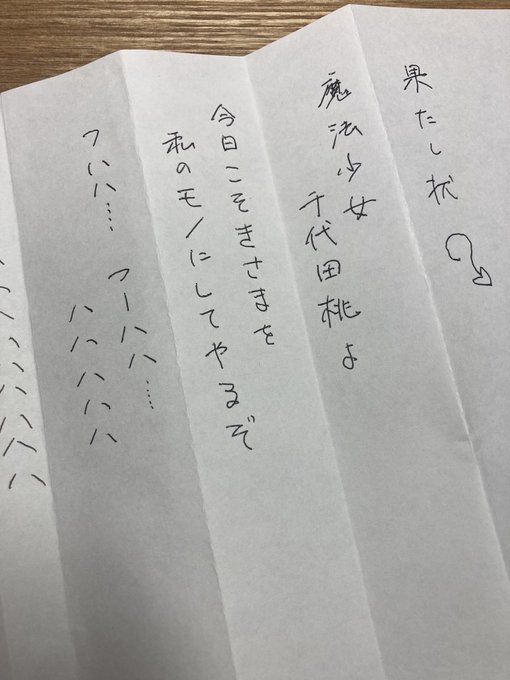 果たし状
魔法少女
千代田桃よ
今日こそきさまを
私のモノにしてやるぞ
フハハ……
フーハハ……
ハハハハハ
ハハハハハハハ